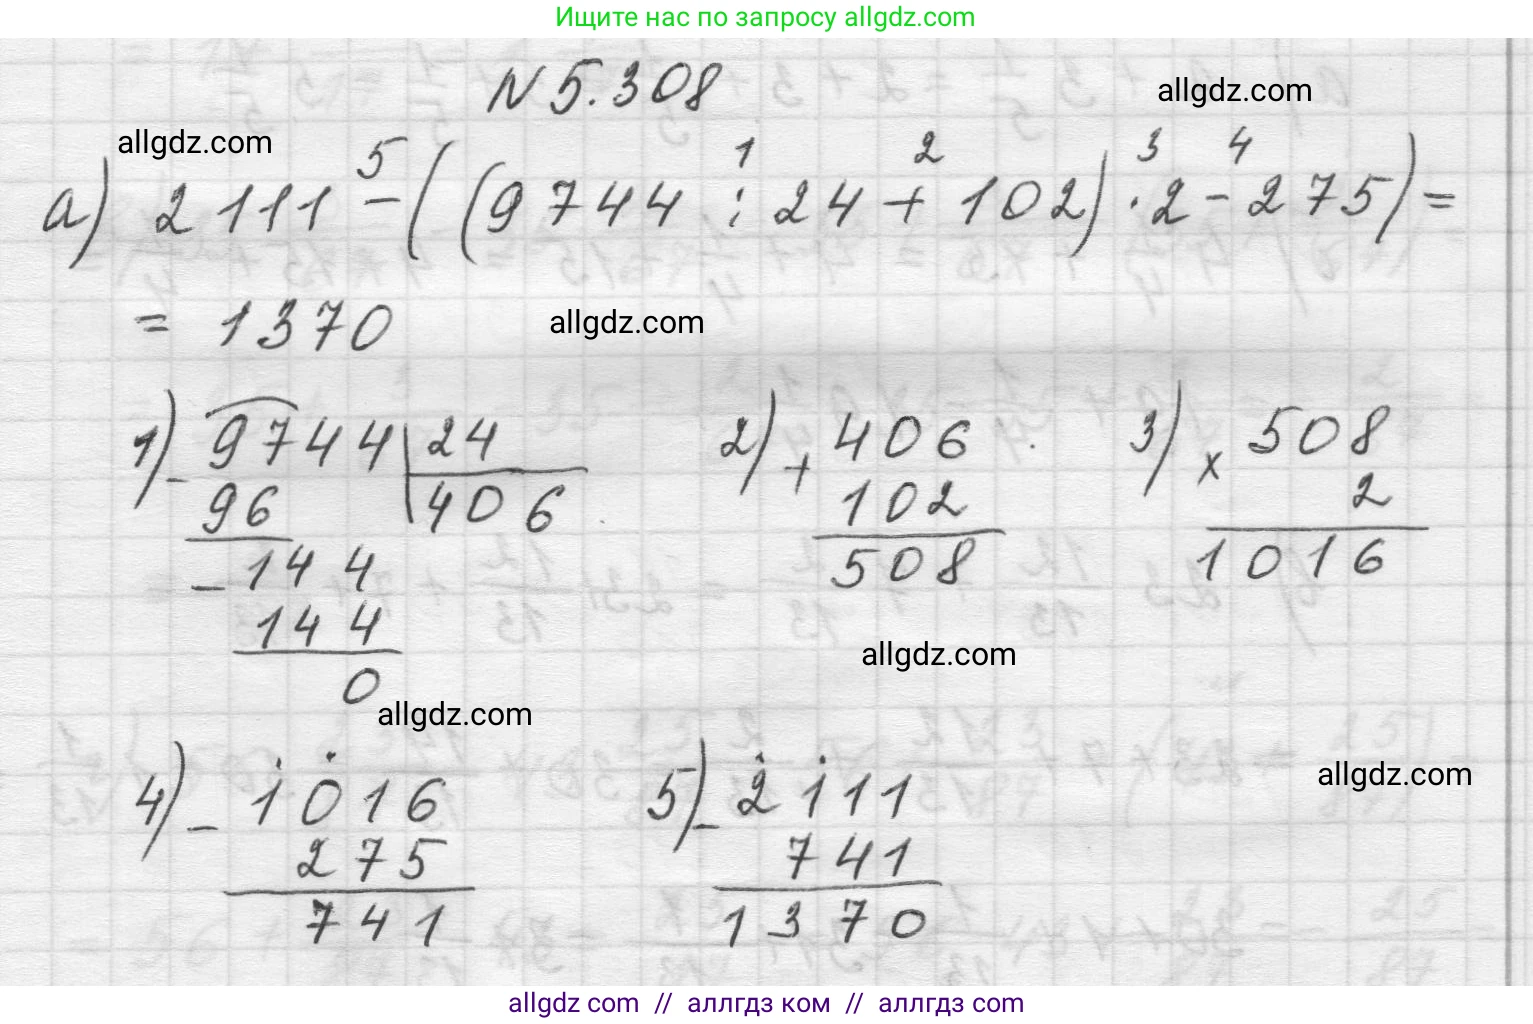 Ищите нас по запросу allgdz.com
N 5.308
allgdz.com
allgdz.com
5 1 2 3 4
а) 2111 - ((9744 : 24 + 102) · 2 - 275) =
= 1370
allgdz.com
1) - 9744 | 24
96 406
- 144
144
0
2) + 406
102
508
3) × 508
2
1016
allgdz.com
allgdz.com
4) - 1016
275
741
5) - 2111
741
1370
allgdz.com
allgdz.com // аллгдз ком // аллгдз com